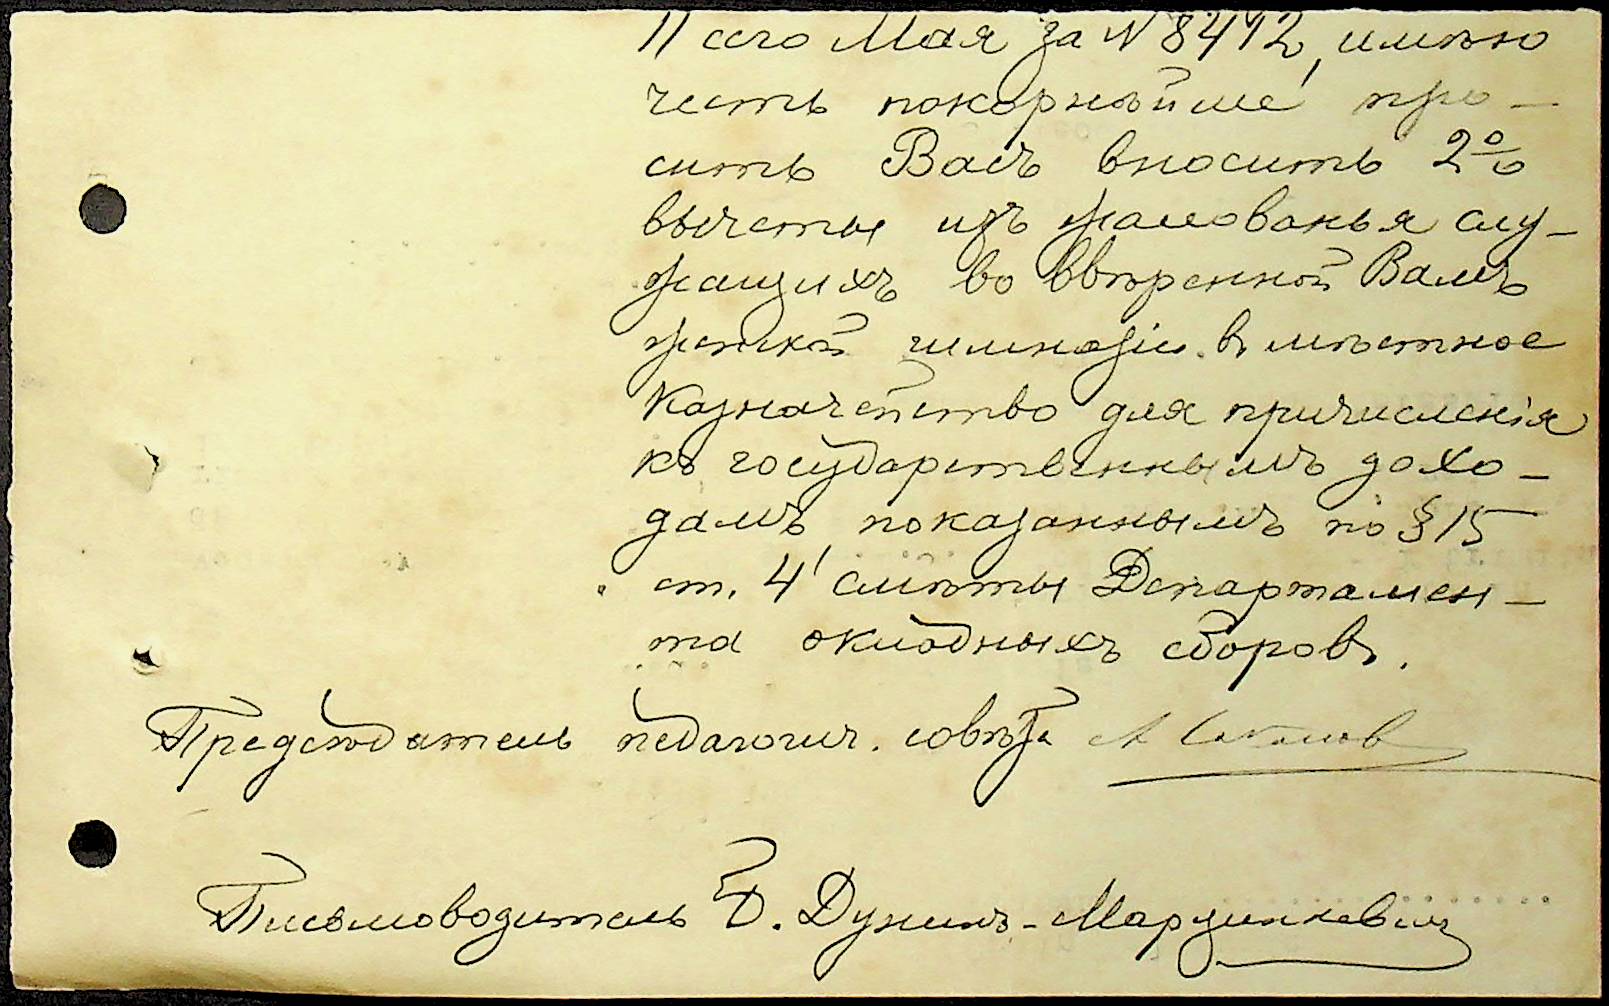 11 сего Мая за N 8492, имѣю
честь покорнѣйше про-
сить Васъ вносить 2%
вычеты изъ жалованья слу-
жащихъ во ввѣренной Вамъ
женской гимназіи въ мѣстное
Казначейство для причисленія
къ государственнымъ дохо-
дамъ, показаннымъ по § 15
ст. 4 смѣты Департамен-
та окладныхъ сборовъ.
Предсѣдатель педагогич. совѣта
Письмоводитель Дунинъ-Марцинкевич